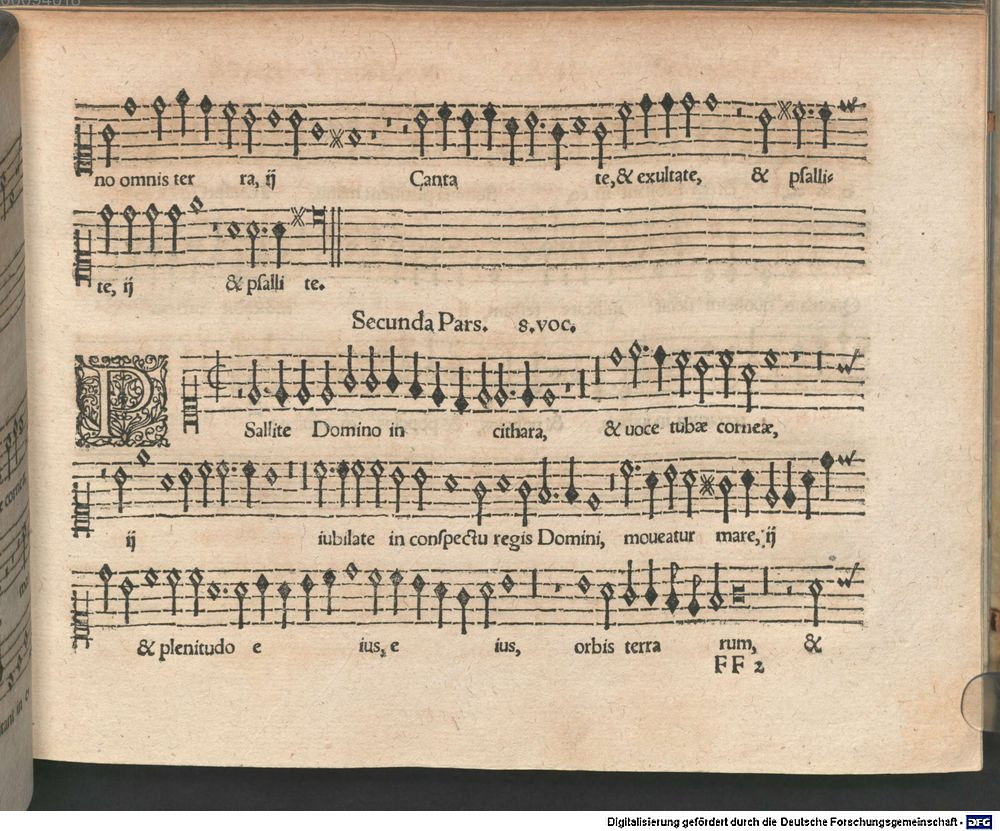 no omnis ter ra, ij Canta te, & exultate, & psalli-
te, ij & psalli te.
Secunda Pars. 8. voc.
PSallite Domino in cithara, & uoce tubæ corneæ,
ij iubilate in conspectu regis Domini, moueatur mare, ij
& plenitudo e ius, e ius, orbis terra rum, &
FF 2
Digitalisierung gefördert durch die Deutsche Forschungsgemeinschaft - DFG